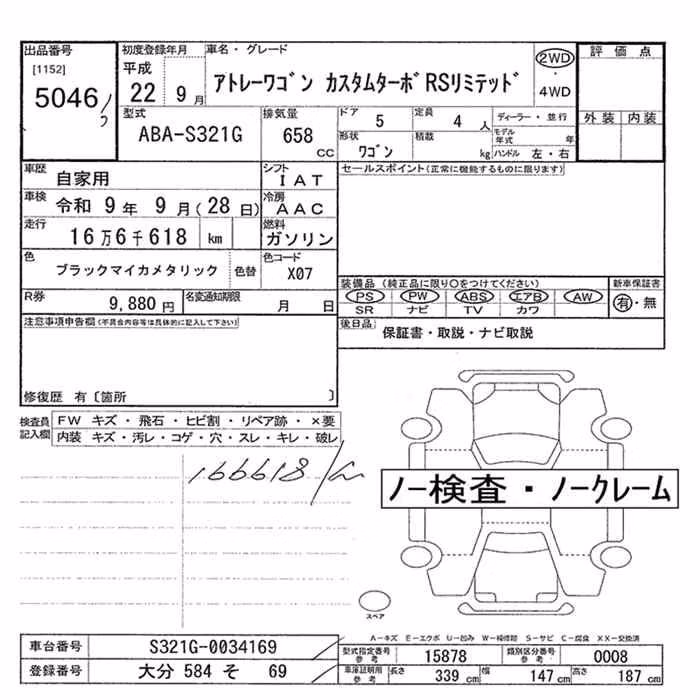 出品番号 初度登録年月 車名・グレード 評価点
[1152] 平成 アトレーワゴン カスタムターボRSリミテッド 2WD
5046 22 9月 ・ 4WD
型式 排気量 ドア 5 定員 4人 ディーラー・並行 外装 内装
ABA-S321G 658 cc 形状 ワゴン 積載 kg モデル年式 年
ハンドル 左・右
車歴 自家用 シフト IAT セールスポイント(正常に機能するものに限ります)
車検 令和 9年 9月(28日) 冷房 AAC
走行 16万6千618 km 燃料 ガソリン
色 ブラックマイカメタリック 色替 色コード X07
装備品 (純正品に限り○をつけてください) 新車保証書
PS PW ABS エアB AW 有・無
SR ナビ TV カワ
R券 9,880円 名変通知期限 月 日
後日品 保証書・取説・ナビ取説
注意事項申告欄(不具合内容等は具体的に記入して下さい)
修復歴 有〔箇所 〕
検査員記入欄 FW キズ・飛石・ヒビ割・リペア跡・×要
内装 キズ・汚レ・コゲ・穴・スレ・キレ・破レ
166618
ノー検査・ノークレーム
スペア
A-キズ E-エクボ U-凹み W-補修跡 S-サビ C-腐食 XX-交換済
車台番号 S321G-0034169 型式指定番号参考 15878 類別区分番号参考 0008
登録番号 大分 584 そ 69 車庫証明用参考 長さ 339cm 幅 147cm 高さ 187cm